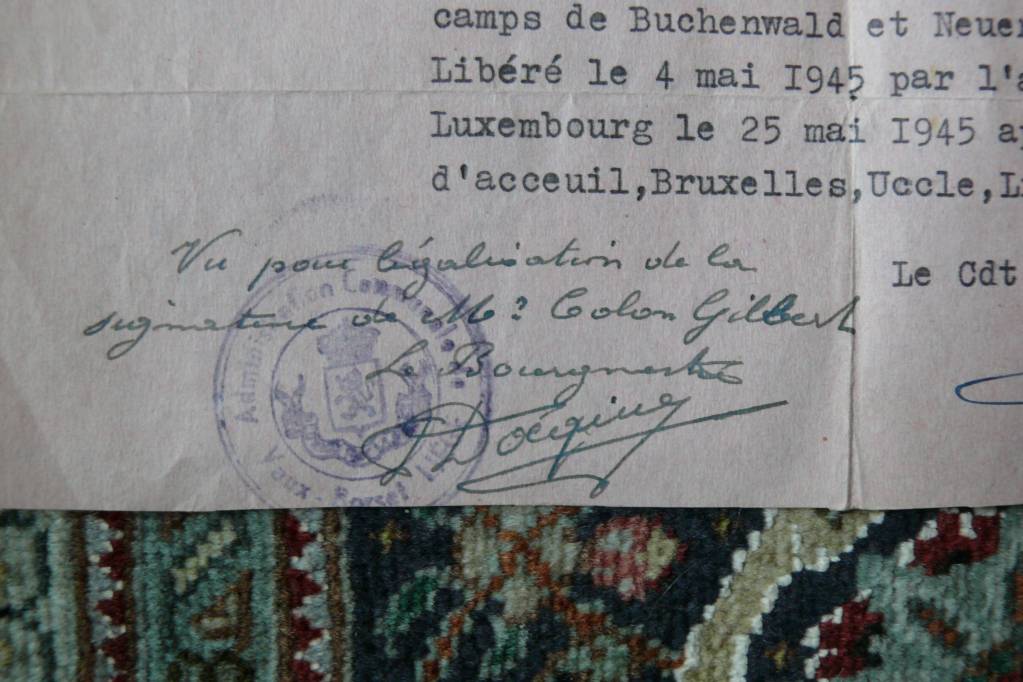 camps de Buchenwald et Neue
Libéré le 4 mai I945 par l'a
Luxembourg le 25 mai I945 a
d'acceuil,Bruxelles,Uccle,L
Vu pour légalisation de la
signature de Mr Colon Gilbert
Le Bourgmestre
Le Cdt
Administration Communale
Vaux-Borset